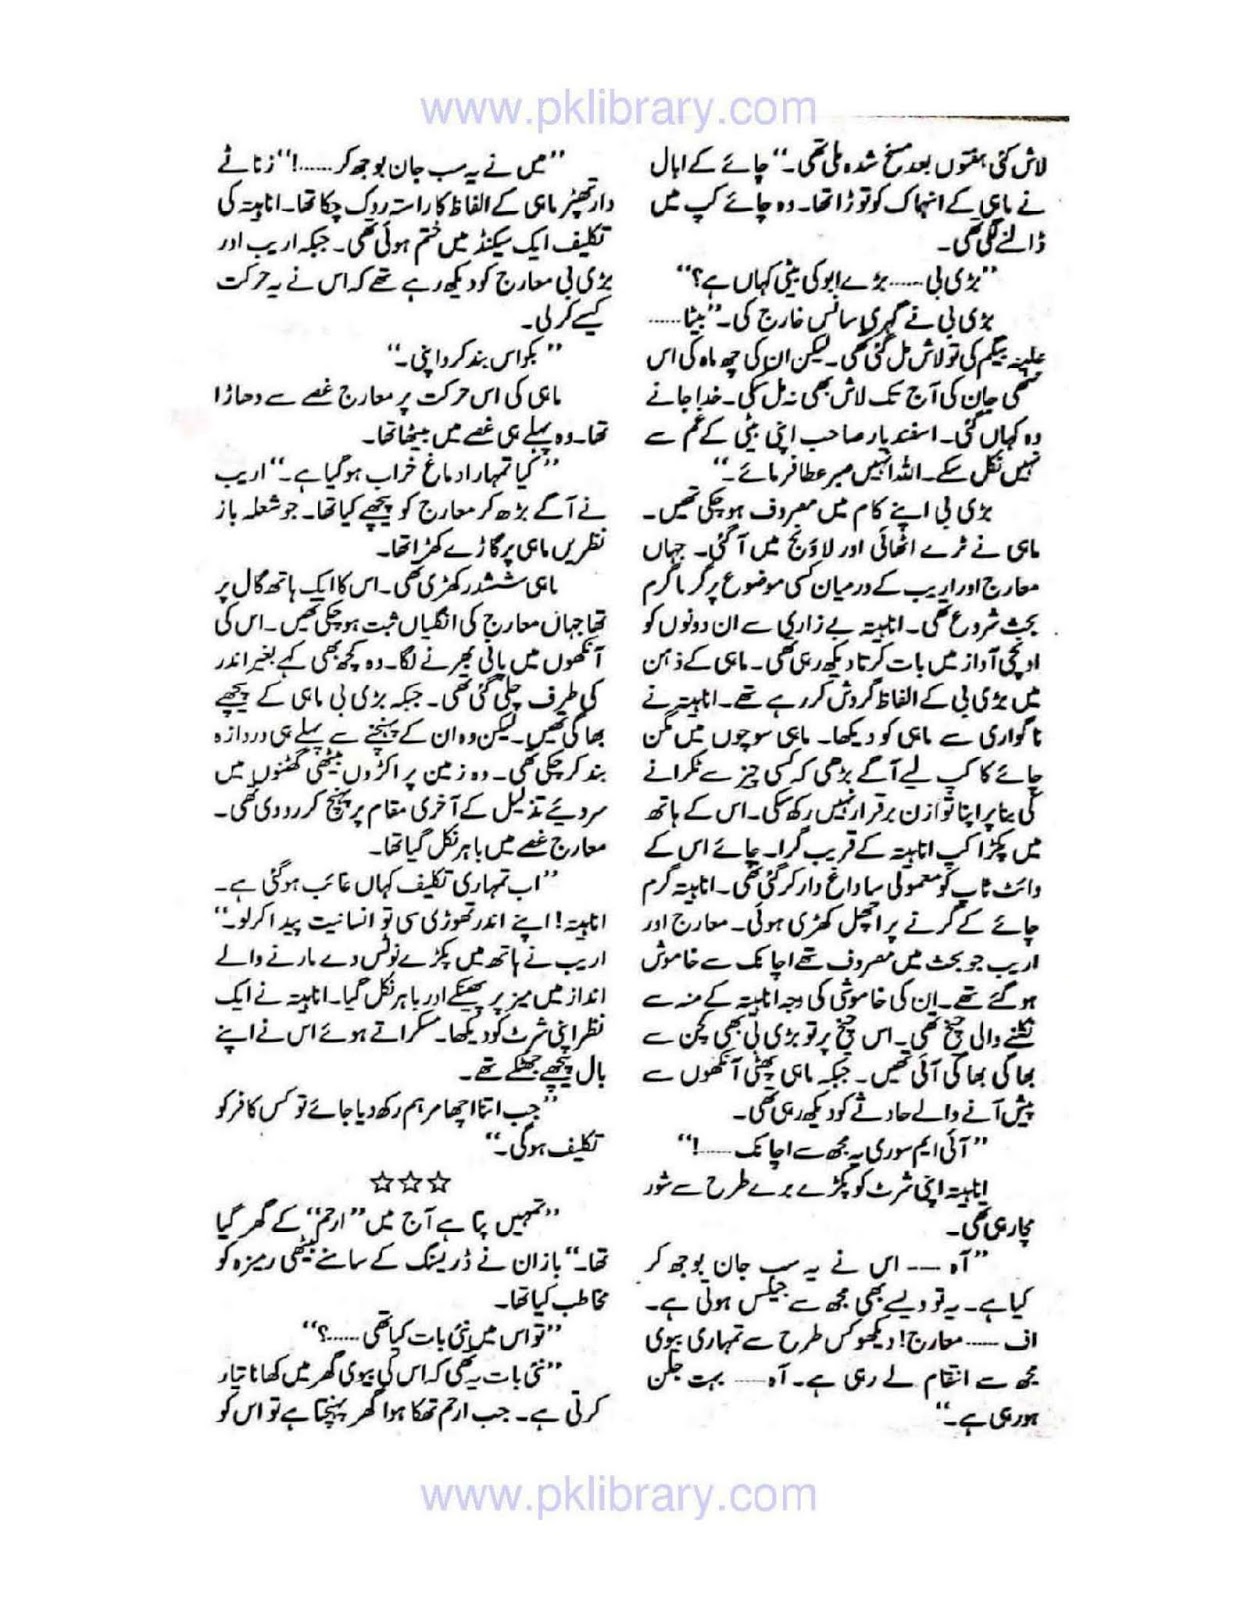 www.pklibrary.com
لاش کئی ہفتوں بعد مسخ شدہ ملی تھی۔‘‘ چائے کے ابال
نے ماہی کے انہماک کو توڑا تھا۔ وہ چائے کپ میں
ڈالنے لگی تھی۔
’’بڑی بی ...... بڑے ابو کی بیٹی کہاں ہے؟‘‘
بڑی بی نے گہری سانس خارج کی۔ ’’بیٹا ......
علینہ بیگم کی تو لاش مل گئی تھی۔ لیکن ان کی چھ ماہ کی اس
ننھی جان کی آج تک لاش بھی نہ مل سکی۔ خدا جانے
وہ کہاں گئی۔ اسفند یار صاحب اپنی بیٹی کے غم سے
نہیں نکل سکے۔ اللہ انہیں صبر عطا فرمائے۔‘‘
بڑی بی اپنے کام میں مصروف ہوچکی تھیں۔
ماہی نے ٹرے اٹھائی اور لاؤنج میں آ گئی۔ جہاں
معارج اور اریب کے درمیان کسی موضوع پر گرما گرم
بحث شروع تھی۔ انابیتہ بے زاری سے ان دونوں کو
اونچی آواز میں بات کرتا دیکھ رہی تھی۔ ماہی کے ذہن
میں بڑی بی کے الفاظ گردش کر رہے تھے۔ انابیتہ نے
ناگواری سے ماہی کو دیکھا۔ ماہی سوچوں میں مگن
چائے کا کپ لیے آگے بڑھی کہ کسی چیز سے ٹکرانے
کی بنا پر اپنا توازن برقرار نہیں رکھ سکی۔ اس کے ہاتھ
میں پکڑا کپ انابیتہ کے قریب گرا۔ چائے اس کے
وائٹ ٹاپ کو معمولی سا داغ دار کر گئی تھی۔ انابیتہ گرم
چائے کے گرنے پر اچھل کھڑی ہوئی۔ معارج اور
اریب جو بحث میں مصروف تھے اچانک سے خاموش
ہو گئے تھے۔ ان کی خاموشی کی وجہ انابیتہ کے منہ سے
نکلنے والی چیخ تھی۔ اس چیخ پر تو بڑی بی بھی کچن سے
بھاگی بھاگی آئی تھیں۔ جبکہ ماہی پھٹی آنکھوں سے
پیش آنے والے حادثے کو دیکھ رہی تھی۔
’’آئی ایم سوری یہ مجھ سے اچانک ......!‘‘
انابیتہ اپنی شرٹ کو پکڑے برے طرح سے شور
مچا رہی تھی۔
’’آہ ---- اس نے یہ سب جان بوجھ کر
کیا ہے۔ یہ تو ویسے بھی مجھ سے جیلس ہوتی ہے۔
اف ...... معارج! دیکھو کس طرح سے تمہاری بیوی
مجھ سے انتقام لے رہی ہے۔ آہ ...... بہت جلن
ہو رہی ہے۔‘‘
’’میں نے یہ سب جان بوجھ کر ......!‘‘ زناٹے
دار تھپڑ ماہی کے الفاظ کا راستہ روک چکا تھا۔ انابیتہ کی
تکلیف ایک سیکنڈ میں ختم ہوئی تھی۔ جبکہ اریب اور
بڑی بی معارج کو دیکھ رہے تھے کہ اس نے یہ حرکت
کیسے کر لی۔
’’بکواس بند کرو اپنی۔‘‘
ماہی کی اس حرکت پر معارج غصے سے دھاڑا
تھا۔ وہ پہلے ہی غصے میں بیٹھا تھا۔
’’کیا تمہارا دماغ خراب ہو گیا ہے۔‘‘ اریب
نے آگے بڑھ کر معارج کو پیچھے کیا تھا۔ جو شعلہ باز
نظریں ماہی پر گاڑے کھڑا تھا۔
ماہی ششدر کھڑی تھی۔ اس کا ایک ہاتھ گال پر
تھا جہاں معارج کی انگلیاں ثبت ہوچکی تھیں۔ اس کی
آنکھوں میں پانی بھرنے لگا۔ وہ کچھ بھی کہے بغیر اندر
کی طرف چلی گئی تھی۔ جبکہ بڑی بی ماہی کے پیچھے
بھاگی تھیں۔ لیکن وہ ان کے پہنچنے سے پہلے ہی دروازہ
بند کر چکی تھی۔ وہ زمین پر اکڑوں بیٹھی گھٹنوں میں
سر دیئے تذلیل کے آخری مقام پر پہنچ کر رو دی تھی۔
معارج غصے میں باہر نکل گیا تھا۔
’’اب تمہاری تکلیف کہاں غائب ہو گئی ہے۔
انابیتہ! اپنے اندر تھوڑی سی تو انسانیت پیدا کر لو۔‘‘
اریب نے ہاتھ میں پکڑے نوٹس دے مارنے والے
انداز میں میز پر پھینکے اور باہر نکل گیا۔ انابیتہ نے ایک
نظر اپنی شرٹ کو دیکھا۔ مسکراتے ہوئے اس نے اپنے
بال پیچھے جھٹکے تھے۔
’’جب اتنا اچھا مرہم رکھ دیا جائے تو کس کافر کو
تکلیف ہو گی۔‘‘
☆☆☆
’’تمہیں پتا ہے آج میں ’’ارحم‘‘ کے گھر گیا
تھا۔‘‘ بازان نے ڈریسنگ کے سامنے بیٹھی رمیزہ کو
مخاطب کیا تھا۔
’’تو اس میں نئی بات کیا تھی ......؟‘‘
’’نئی بات یہ تھی کہ اس کی بیوی گھر میں کھانا تیار
کرتی ہے۔ جب ارحم تھکا ہوا گھر پہنچتا ہے تو اس کو
www.pklibrary.com